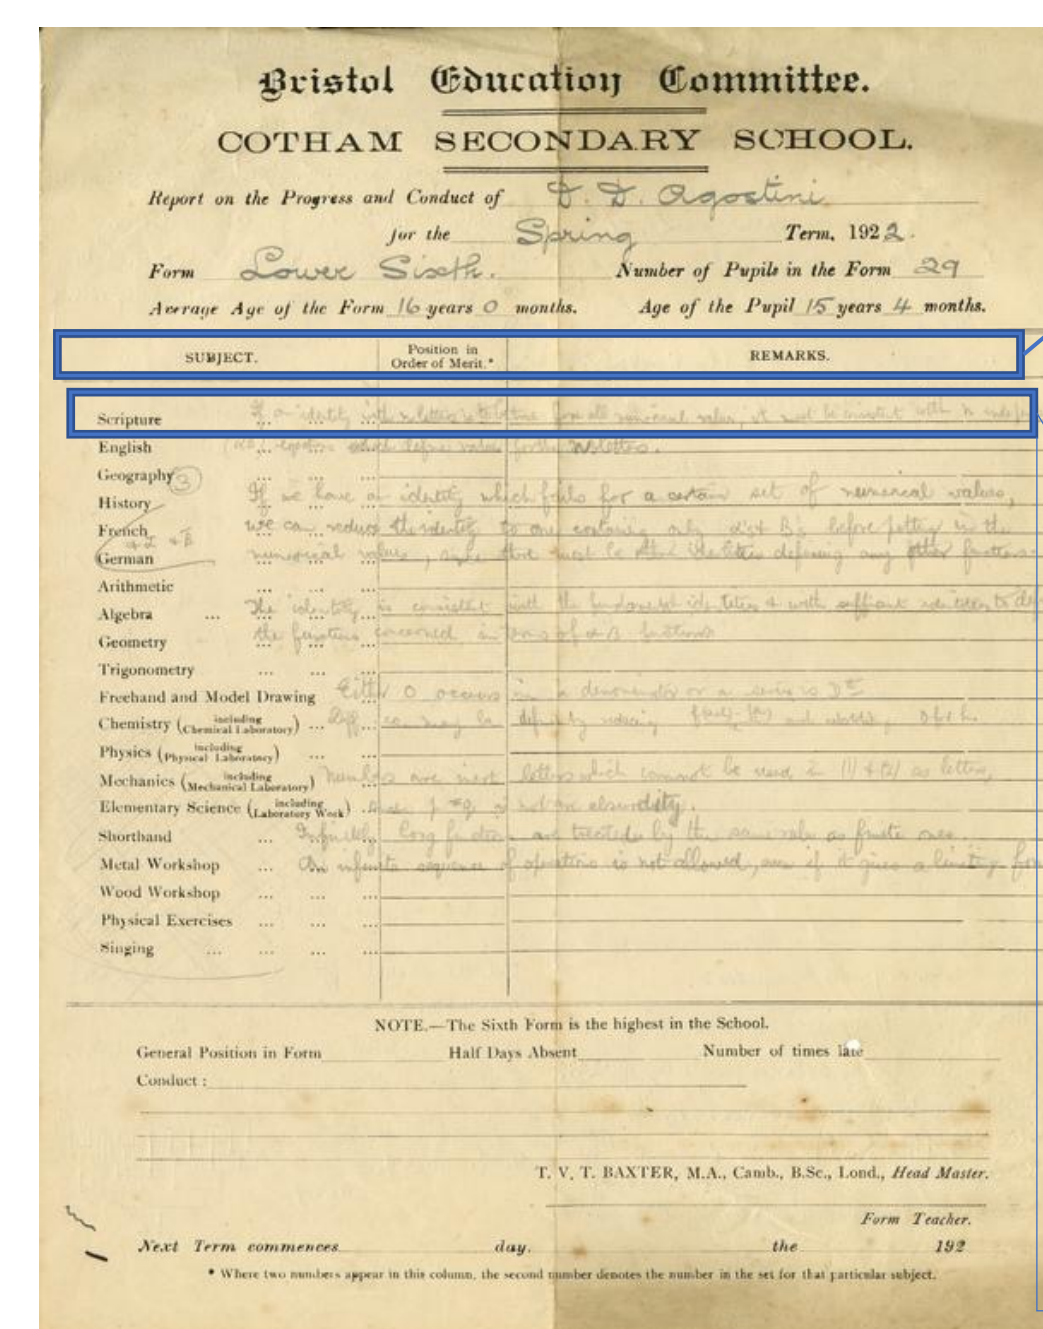 Bristol Education Committee.
COTHAM SECONDARY SCHOOL.
Report on the Progress and Conduct of D. D. Agostini
for the Spring Term, 1922.
Form Lower Sixth. Number of Pupils in the Form 29
Average Age of the Form 16 years 0 months. Age of the Pupil 15 years 4 months.
SUBJECT. Position in Order of Merit.* REMARKS.
Scripture ... ... ... If an identity with n letters is to be true for all numerical values, it must be consistent with n
English ... ... ... equations which define values for the n letters.
Geography ③ ... ... ...
History ... ... ... If we have an identity which fails for a certain set of numerical values,
French ... ... ... we can reduce the identity to one containing only before putting in the
German ... ... ... numerical values, since there must be other identities defining any other functions
Arithmetic ... ... ...
Algebra ... ... ... ... The identity is consistent with the fundamental identities & with sufficient identities to
Geometry ... ... ... the functions concerned in terms of functions
Trigonometry ... ... ...
Freehand and Model Drawing Either 0 occurs in a denominator or a series is
Chemistry (including Chemical Laboratory) ... may be
Physics (including Physical Laboratory) ... ...
Mechanics (including Mechanical Laboratory) Numbers are inert letters which cannot be used in (1) & (2) as letters,
Elementary Science (including Laboratory Work) ... is not an absurdity.
Shorthand ... Infinitely long functions are treated by the same rules as finite ones.
Metal Workshop ... An infinite sequence of operations is not allowed, even if it gives a limiting
Wood Workshop ... ... ...
Physical Exercises ... ... ...
Singing ... ... ... ...
NOTE.—The Sixth Form is the highest in the School.
General Position in Form Half Days Absent Number of times late
Conduct :
T. V. T. BAXTER, M.A., Camb., B.Sc., Lond., Head Master.
Form Teacher.
Next Term commences day, the 192
* Where two numbers appear in this column, the second number denotes the number in the set for that particular subject.